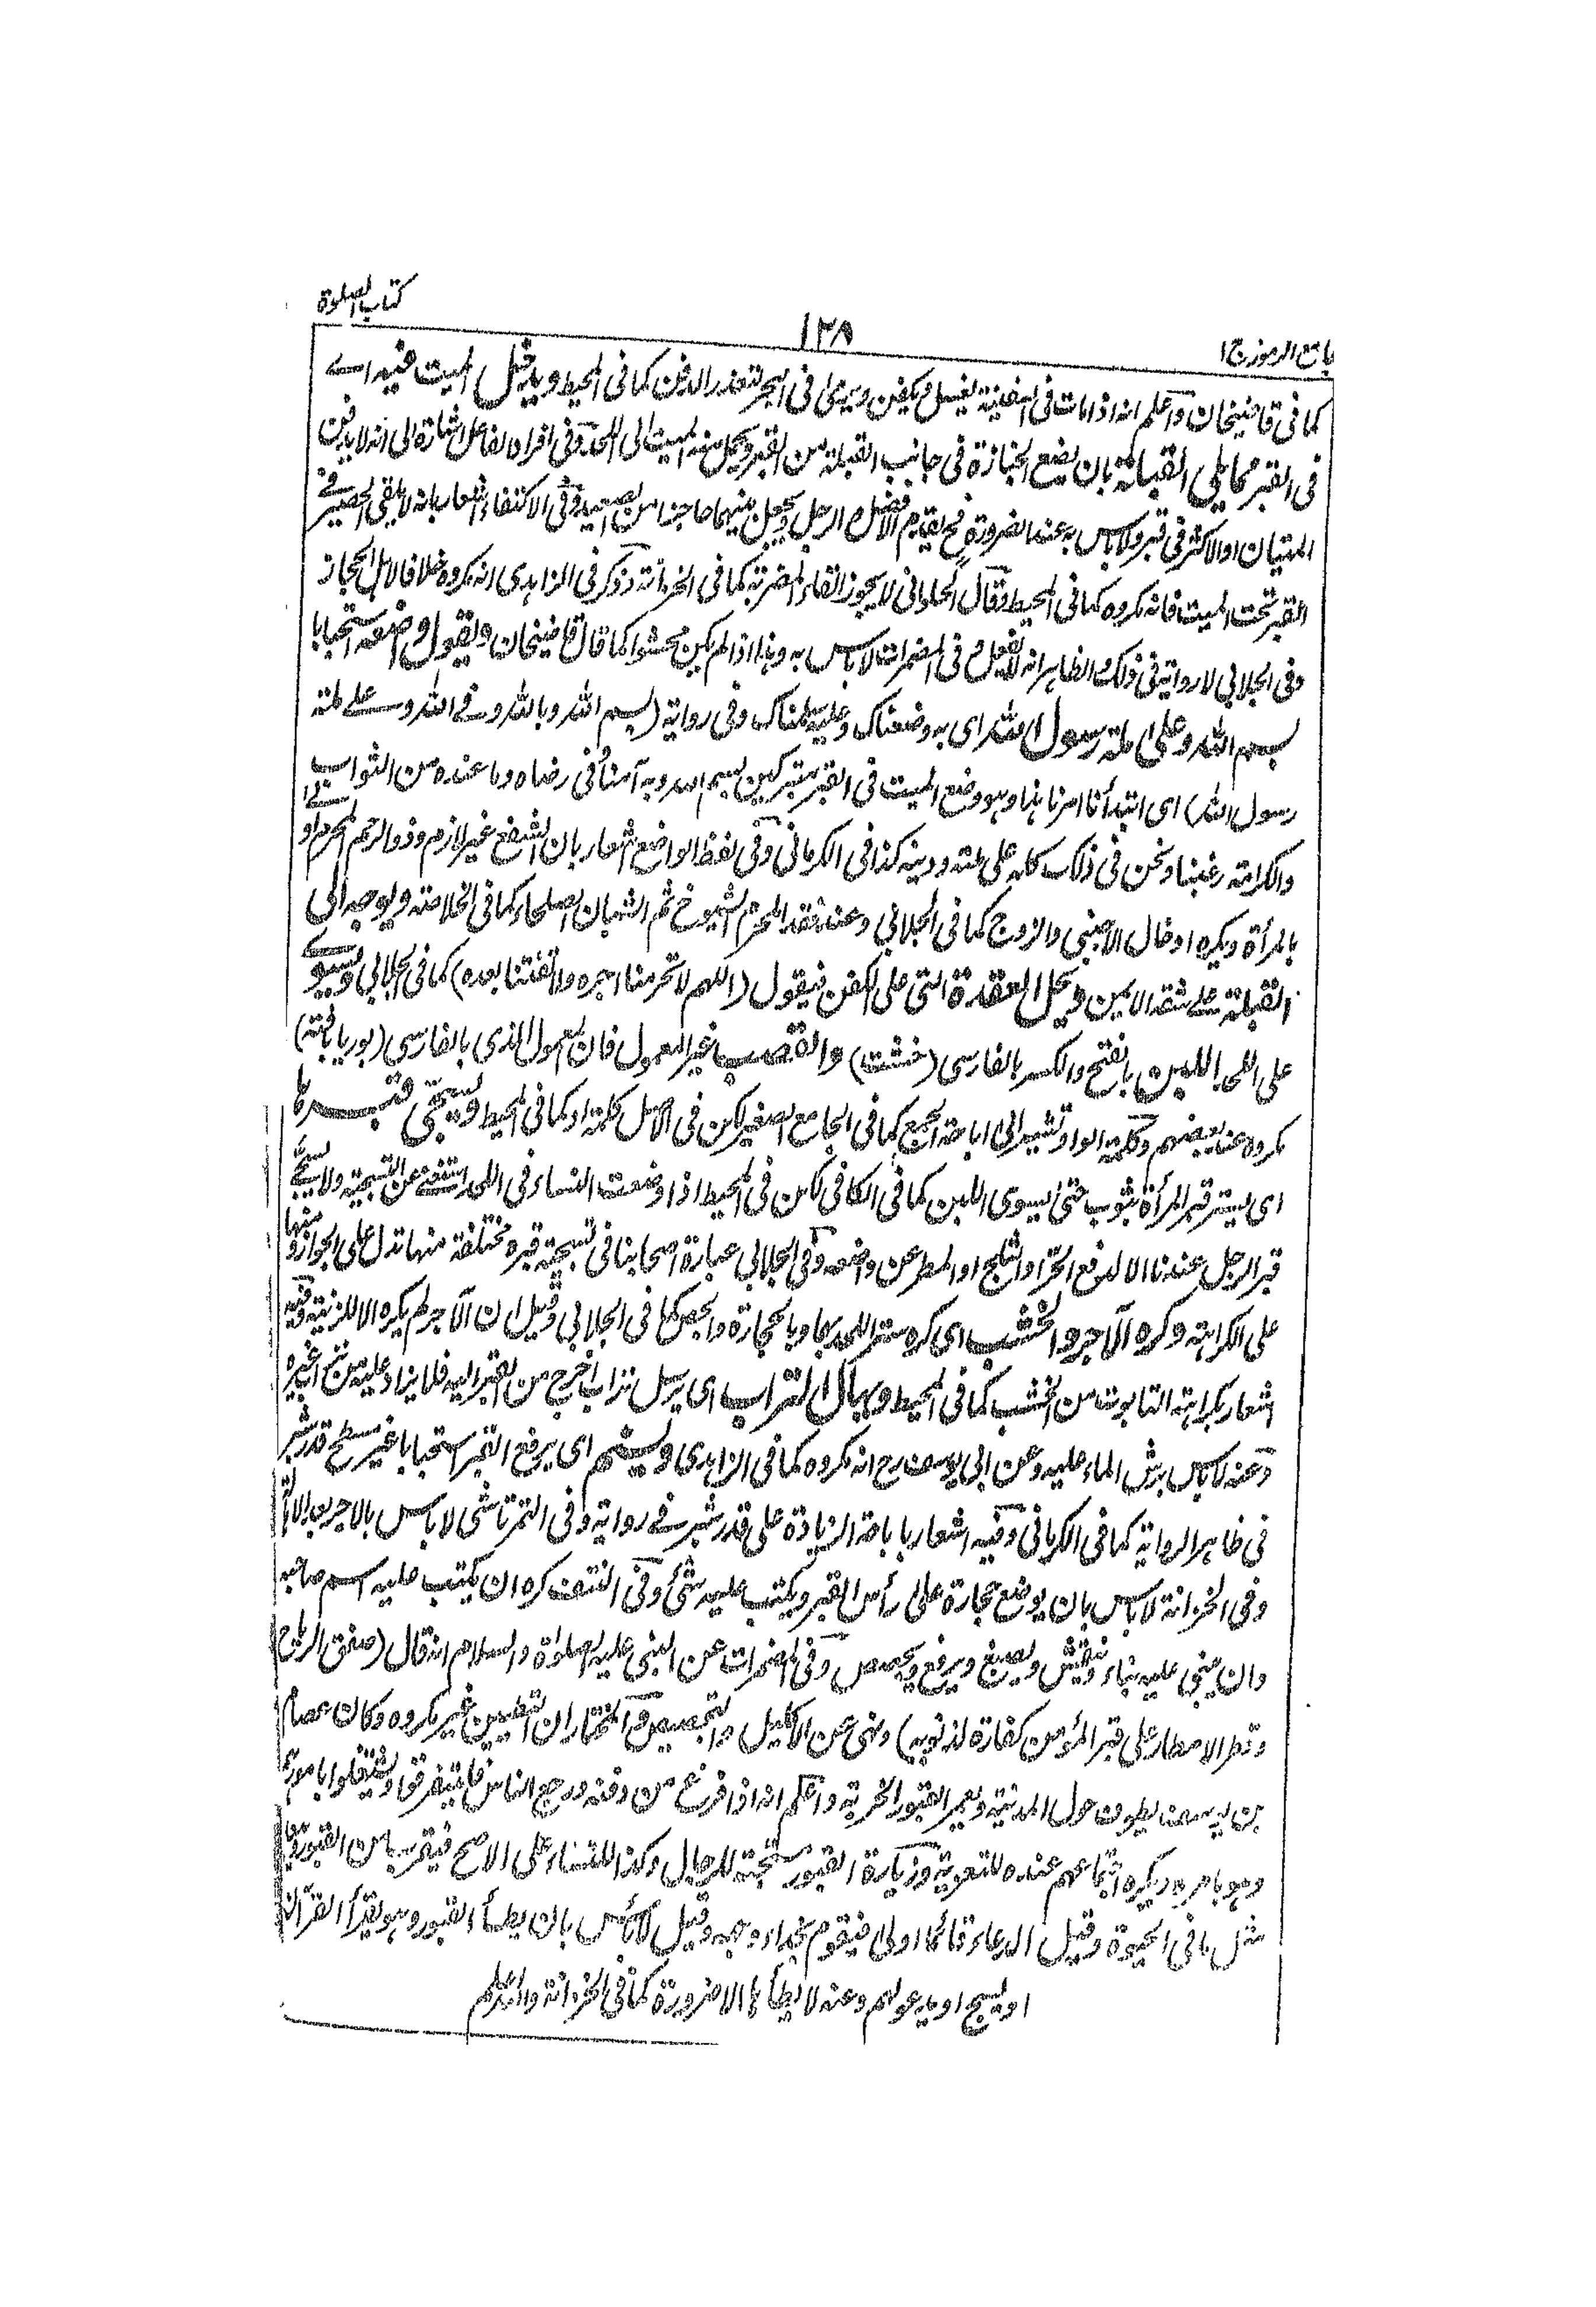 كتاب الصلوة
١٢٨
جامع الرموز ج١
كما فى قاضيخان واعلم انه اذا مات فى السفينة يغسل ويكفن ويرمى فى البحر لتعذر الدفن كما فى المحيط ويدخل الميت فيه اے
فى القبر مما يلى القبلة بان يضع الجنازة فى جانب القبلة من القبر ويحمل منه الميت الى اللحد وفى افراد الفاعل اشارة الى انه لا يدفن
الميتان او الاكثر فى قبر ولا باس به عند الضرورة فح يقدم الافضل الرجل ويجعل بينهما حاجزا من الصعيد وفى الاكتفاء اشعار بانه لا يلقى الحصير فے
القبر تحت الميت فانه مكروه كما فى المحيط وقال الحلوانى لا يجوز القاء المضربة كما فى الخزانة وذكر فى الزاهدى انه مكروه خلافا لاهل الحجاز
وفى الجلابى لا رواية فى ذلك والظاهر انه لا يفعل وفى المضمرات لا باس به وهذا اذا لم يكن محشوا كما قال قاضيخان ويقول واضعه استحبابا
بسم الله وعلى ملة رسول الله اى به وضعناك وعليه سلمناك وفى رواية (بسم الله وبالله وفے الله وعلے ملة
رسول الله) اى ابتدأنا امرنا هذا وهو وضع الميت فى القبر متبركين بسم الله وبه آمنا وفى رضاه وما عنده من الثواب
والكرامة رغبنا ونحن فى ذلك كله على ملته ودينه كذا فى الكرمانى وفى لفظ الواضع اشعار بان الشفع غير لازم وذو الرحم المحرم اولى
بالمرأة ويكره ادخال الاجنبى والزوج كما فى الجلابى وعند فقد المحرم الشيوخ ثم الشبان الصلحاء كما فى الخلاصة ويوجه الى
القبلة علے شقه الايمن ويحل العقدة التى على الكفن فيقول (اللهم لا تحرمنا اجره ولا تفتنا بعده) كما فى الجلابى ويسوى
على اللحد اللبن بالفتح والكسر بالفارسى (خشت) والقصب غير المعمول فان المعمول الذى بالفارسى (بوريا بافته)
مكروه عند بعضهم وكلمة الواو تشير الى اباحة الجمع كما فى الجامع الصغير لكن فى الاصل كلمة او كما فى المحيط ويسجى قبرها
اى يستر قبر المرأة بثوب حتى يسوى اللبن كما فى الكافى لكن فى المحيط اذا وضعت النساء فى اللحد استغنى عن التسجية ولا يسجى
قبر الرجل عندنا الا لدفع الحر او الثلج او المطر عن واضعه وفى الجلابى عبارة اصحابنا فى تسجية قبره مختلفة منها تدل على الجواز ومنها
على الكراهة وكره الآجر والخشب اى كره ستر اللحد بهما وبالحجارة والجص كما فى الجلابى وقيل ان الآجر لم يكره الا للزينة وفيه
اشعار بكراهة التابوت من الخشب كما فى المحيط ويهال التراب اى يرسل تراب اخرج من القبر اليه فلا يزاد عليه من تراب غيره
وعنه لا باس برش الماء عليه وعن ابى يوسف رح انه مكروه كما فى الزاهدى ويسنم اى يرفع القبر استحبابا غير مسطح قدر شبر
فى ظاهر الرواية كما فى الكرمانى وفيه اشعار باباحة الزيادة على قدر شبر فے رواية وفى التمرتاشى لا باس بالاجر
وفى الخزانة لا باس بان يوضع حجارة على رأس القبر ويكتب عليه شئ وفى النتف كره ان يكتب عليه اسم صاحبه
وان يبنى عليه بناء وينقش ويصبغ ويرفع ويجصص وفى المضمرات عن النبى عليه الصلوة والسلام انه قال (صفق الرياح
وقطر الامطار على قبر المؤمن كفارة لذنوبه) ونهى عن الاكليل والتجصيص والمختار ان التطيين غير مكروه وكان عصام
بن يوسف يطوف حول المدينة ويعمر القبور الخربة واعلم انه اذا فرغ من دفنه ورجع الناس فليتفرقوا ويشتغلوا بامورهم
وهو بامره ويكره اجتماعهم عنده للتعزية وزيارة القبور مستحبة للرجال وكذا للنساء على الاصح فيقرب من القبور
مثل ما فى الحيوة وقيل الدعاء قائما اولى فيقوم بحذاء وجهه وقيل لا باس بان يطأ القبور وهو يقرأ القرآن
او يسبح او يدعو لهم وعنه لا يطأها الا ضرورة كما فى الخزانة والله اعلم